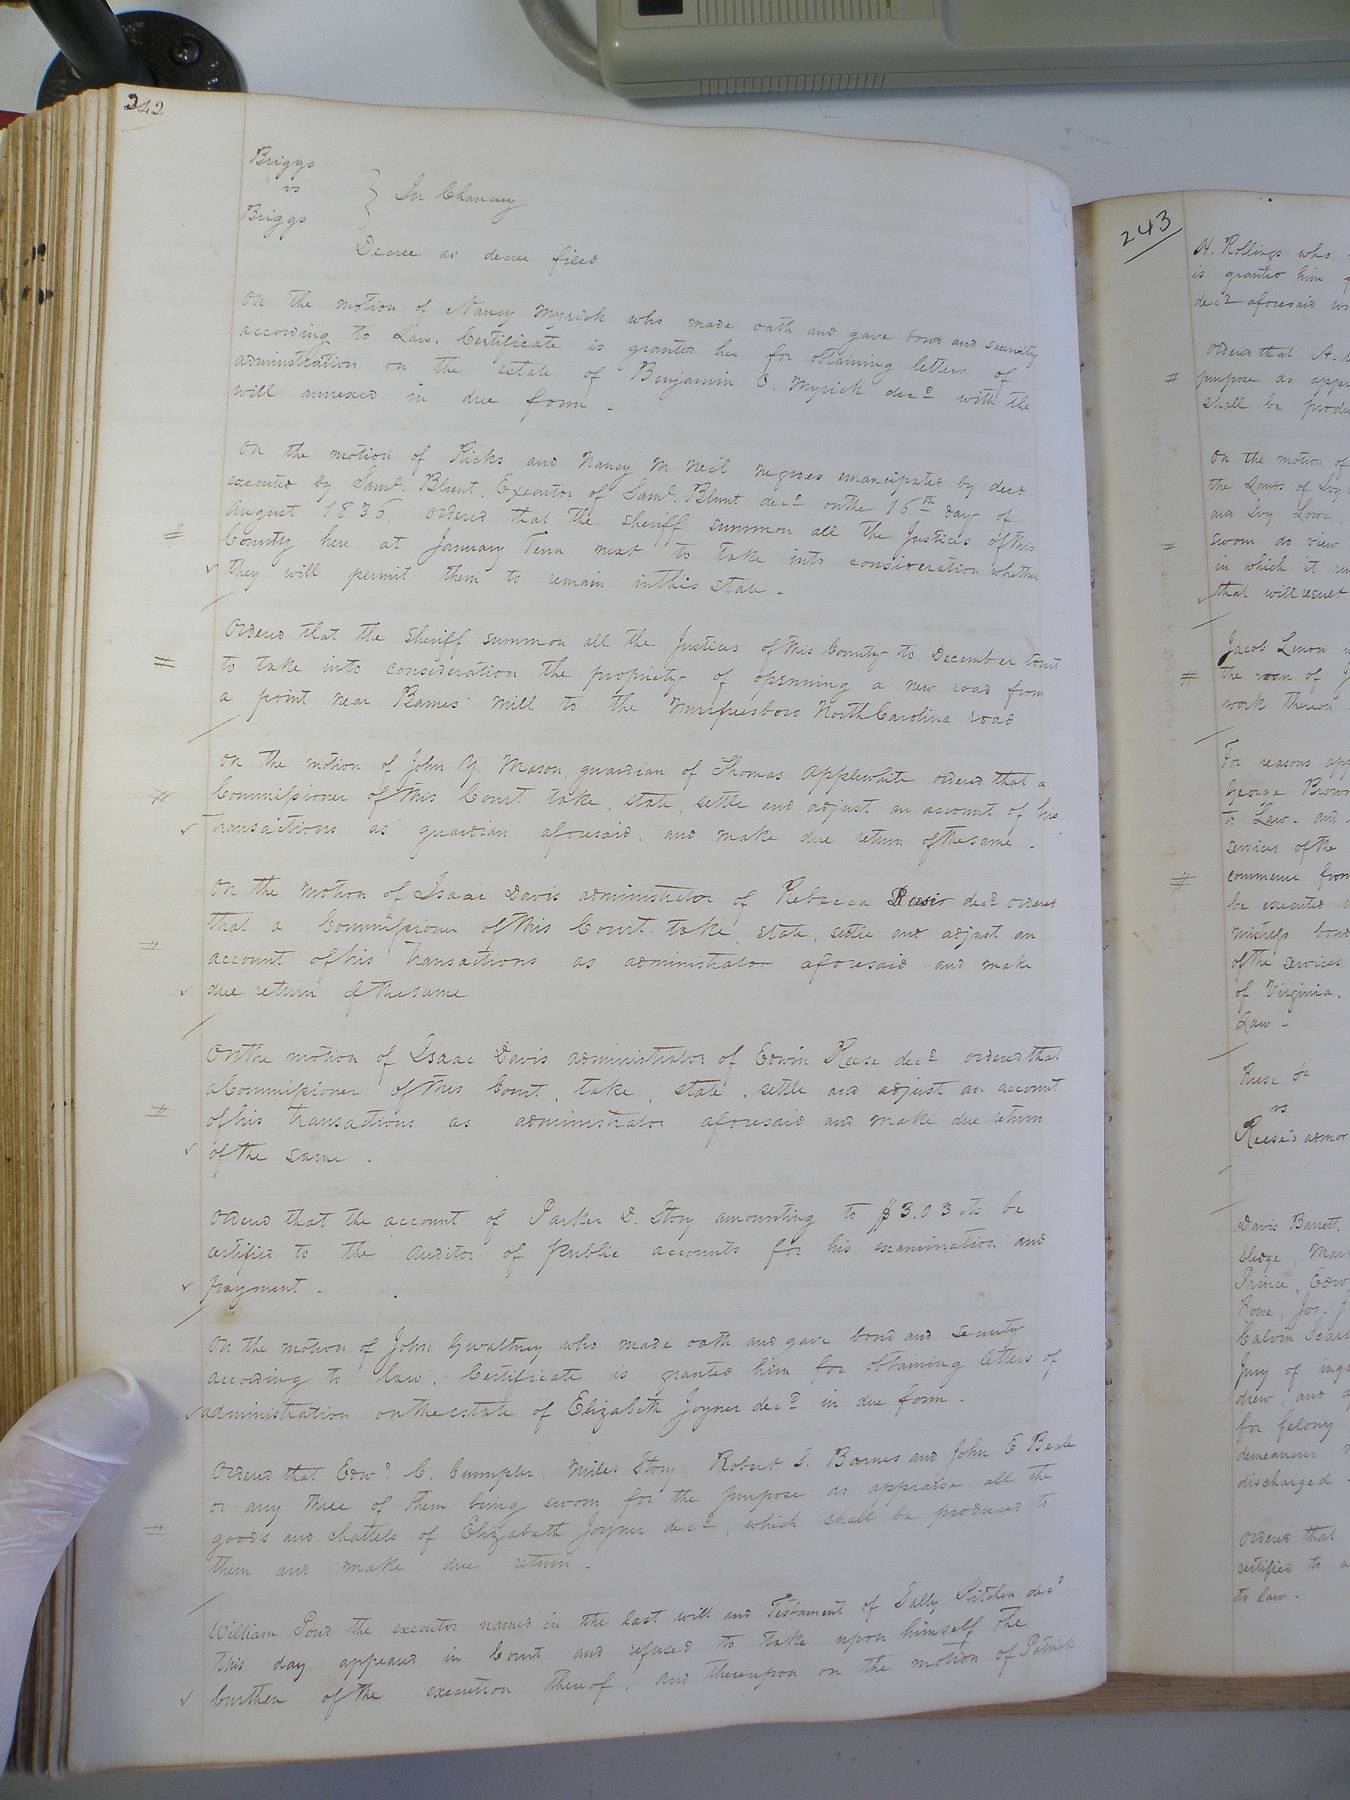 242
Briggs
vs
Briggs
In Chancery
Decree as decree filed
On the motion of Nancy Myrick who made oath and gave bond and security
according to Law. Certificate is granted her for obtaining letters of
administration on the estate of Benjamin C. Myrick decd. with the
will annexed in due form.
On the motion of Ricks and Nancy M Neil negroes emancipated by deed
executed by Saml. Blunt. Executor of Saml. Blunt decd. on the 16th day of
August 1836, ordered that the sheriff summon all the Justices of this
County here at January Term next to take into consideration whether
they will permit them to remain in this state.
Ordered that the sheriff summon all the Justices of this County to December Court
to take into consideration the propriety of openning a new road from
a point near Barnes' Mill to the Murfreesboro North Carolina road
On the motion of John Y. Mason, guardian of Thomas Applewhite ordered that a
Commissioner of this Court take, state, settle and adjust an account of his
transactions as guardian aforesaid, and make due return of the same.
On the motion of Isaac Davis administrator of Rebecca decd. ordered
that a Commissioner of this Court take, state, settle and adjust an
account of his transactions as administrator aforesaid and make
due return of the same
On the motion of Isaac Davis administrator of Edwin Reese decd. ordered that
a Commissioner of this Court, take, state, settle and adjust an account
of his transactions as administrator aforesaid and make due return
of the same.
Ordered that the account of Parker D. Story amounting to $3.03 cts be
certified to the auditor of public accounts for his examination and
payment.
On the motion of John Gwaltney who made oath and gave bond and security
according to law. Certificate is granted him for obtaining letters of
administration on the estate of Elizabeth Joyner decd. in due form.
Ordered that Edwd. C. Crumpler, Miles Story, Robert S. Barnes and John E. Beale
or any three of them being sworn for the purpose do appraise all the
goods and chattels of Elizabeth Joyner decd., which shall be produced to
them and make due return.
William Pond the executor named in the last will and Testament of Sally Kitchen decd
this day appeared in Court and refused to take upon himself the
burthen of the execution thereof, and thereupon on the motion of Patrick
243
H. Rollings who
is granted him
decd. aforesaid
Ordered that A.
purpose do
shall be
On the motion of
the Laws of
and
sworn do view
in which it
that will result
Jacob
the room of
work thereon
For reasons
George Brown
to Law. and
services of the
commence from
be executed
of the services
of Virginia.
Law -
Reese &c
vs
Reese's admor
Davis Barrett
Prince,
Rowe, Jos.
Calvin
Jury of
drew, and
for felony
demeanour
discharged
Ordered that
certified to
to law.